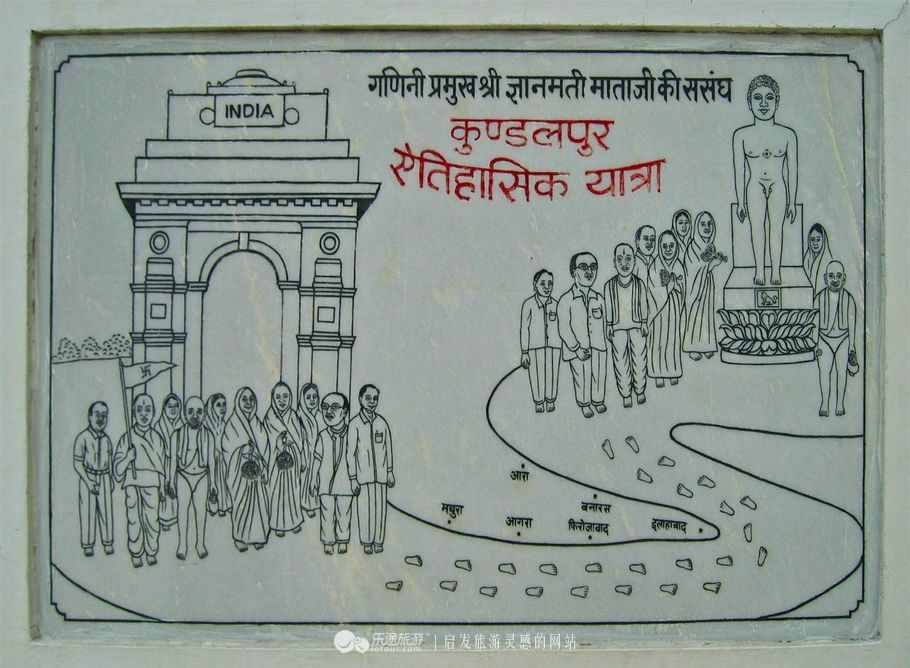 INDIA
गणिनी प्रमुख श्री ज्ञानमती माताजी की ससंघ
कुण्डलपुर
ऐतिहासिक यात्रा
आरा
बनारस
मथुरा
आगरा
फिरोजाबाद
इलाहाबाद
乐途旅游
lotour.com
启发旅游灵感的网站